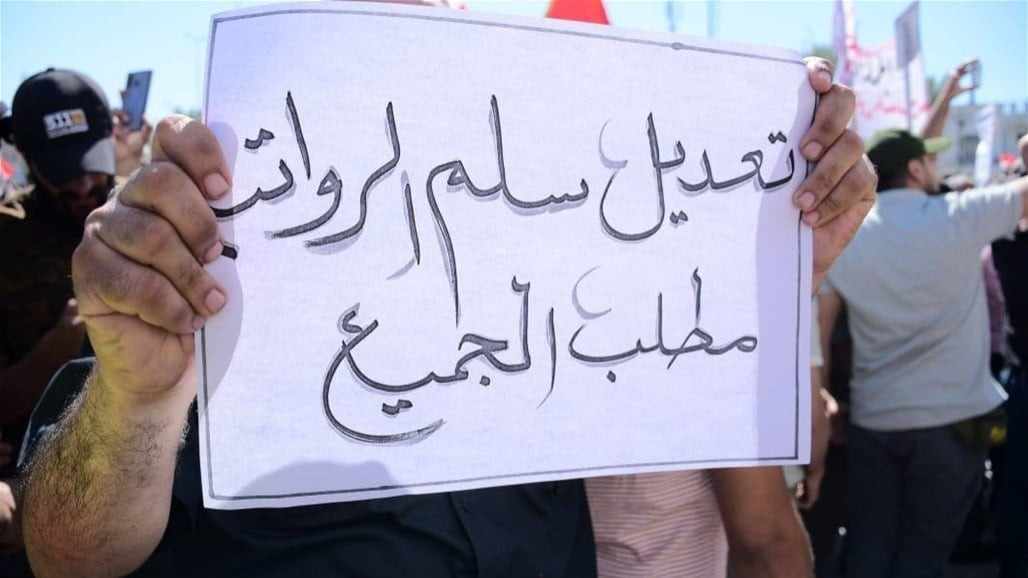 تعديل سلم الرواتب
مطلب الجميع
511